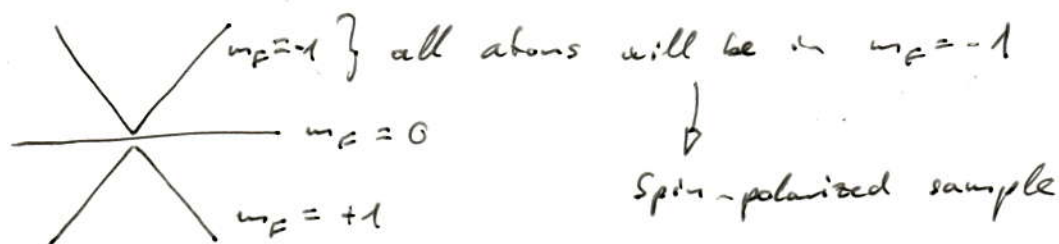 m_F=-1 } all atoms will be in m_F=-1
m_F = 0
Spin-polarized sample
m_F = +1